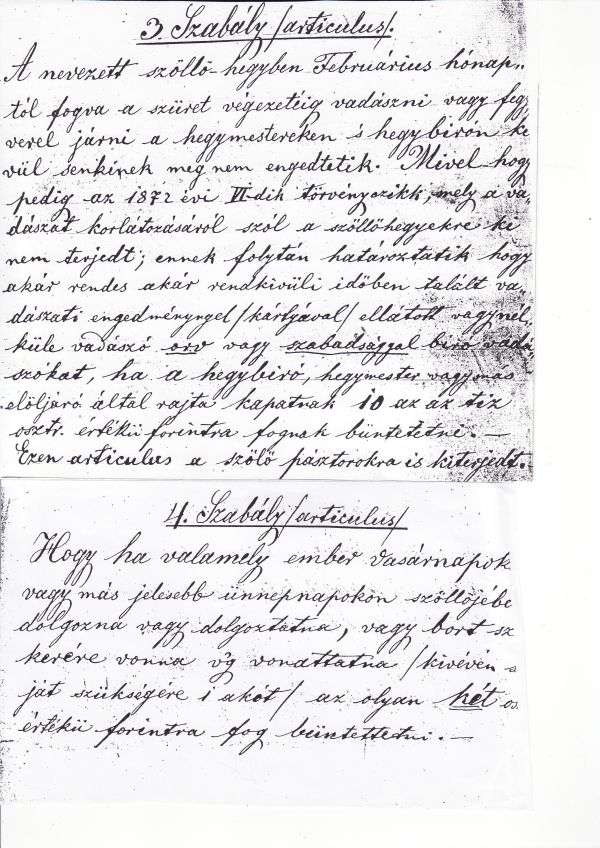 3. Szabály /articulus/.
A nevezett szöllő-hegyben Februárius hónap-
tól fogva a szüret végezetéig vadászni vagy fegy
verel járni a hegymestereken s hegybirón ki
vül senkinek meg nem engedtetik. Mivel hogy
pedig az 1872 évi VI-dik törvényczikk, mely a va-
dászat korlátozásáról szól a szöllőhegyekre ki
nem terjedt; ennek folytán határoztatik hogy
akár rendes akár rendkivüli időben talált va-
dászati engedménynyel /kártyával/ ellátott vagy nél-
küle vadászó orv vagy szabadsággal biró vadá-
szókat, ha a hegybiró, hegymester vagy más
elöljáró által rajta kapatnak 10 az az tiz
osztr. értékü forintra fognak büntetetni. —
Ezen articulus a szőlő pásztorokra is kiterjedt.
4. Szabály /articulus/
Hogy ha valamely ember vasárnapok
vagy más jelesebb ünnepnapokon szöllőjébe
dolgozna vagy dolgoztatna, vagy bort sz
kerére vonna v'gy vonattatna /kivévén
ját szükségére 1 akót/ az olyan két os
értékü forintra fog büntettetni. —